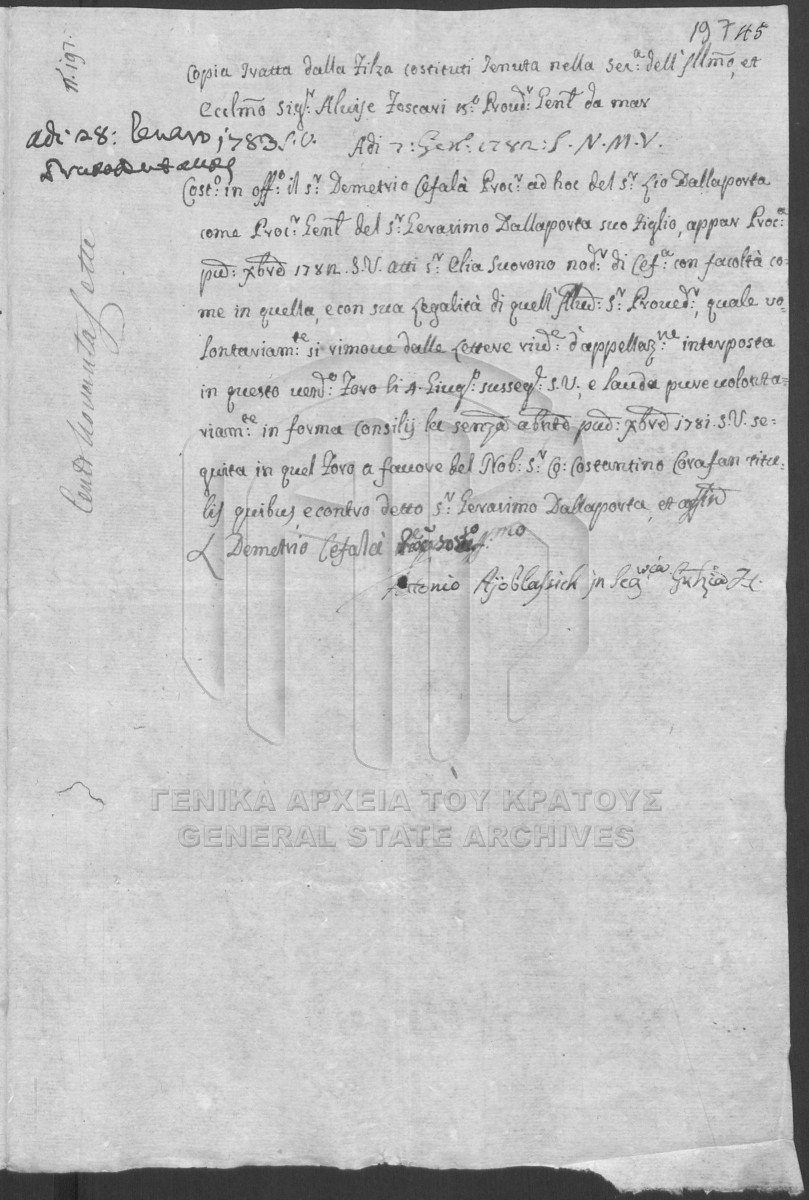 19 745
N. 197.
Copia tratta dalla Filza costituti tenuta nella Seg:ª dell'Illmo, et
Eccllmo Sigr Aluise Foscari Proudr Genl da mar
adi 28: Genaro 1783 S.V.
Adi 7: Gen: 1782: S. N. M. V.
Costo: in offo: il sr: Demetrio Cefalà Procr: ad hoc del sr: Lio Dallaporta
come Procr: Genl del sr: Gerasimo Dallaporta suo Figlio, appar Proca:
pmd: Xbre 1782. S.V. atti sr: Elia Suorono nodr: di Cefa: con facoltà co=
me in quella, e con sua Legalità di quell' sr: Prouedr:, quale vo=
lontariamte: si rimoue dalle Lettere d'appellazne: interposta
in questo Foro li 4. Giugo: S.V., e lauda pure uolonta=
riamte: in forma consilij la senza pmd: Xbre 1781. S.V. se=
guita in quel Foro a fauore del Nob: sr: Co: Costantino Corafan titu=
lis quibus, e contro detto sr: Gerasimo Dallaporta, et
Demetrio Cefalà
Antonio
Cento Nouanta Sette
ΓΕΝΙΚΑ ΑΡΧΕΙΑ ΤΟΥ ΚΡΑΤΟΥΣ
GENERAL STATE ARCHIVES